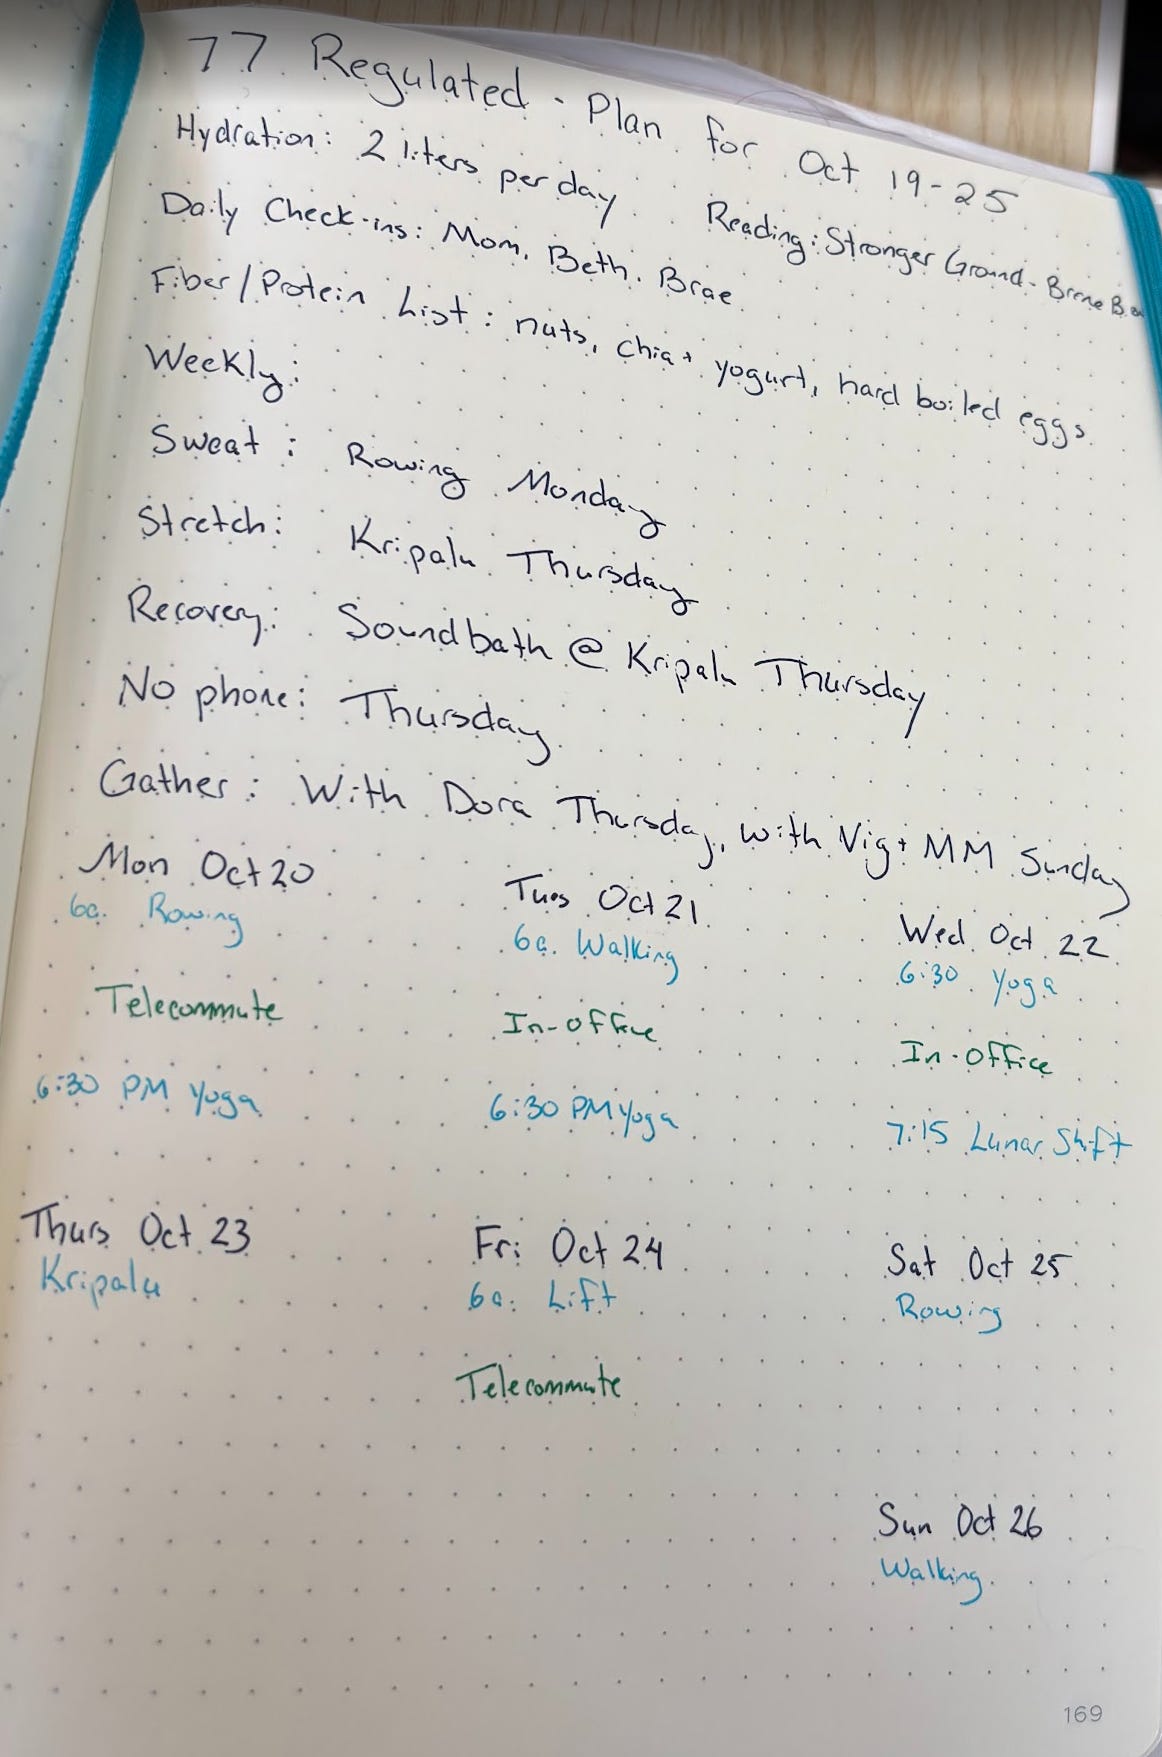 77 Regulated - Plan for Oct 19-25
Hydration: 2 liters per day
Reading: Stronger Ground - Brene B
Daily Check-ins: Mom, Beth, Brae
Fiber/Protein List: nuts, chia + yogurt, hard boiled eggs
Weekly:
Sweat: Rowing Monday
Stretch: Kripalu Thursday
Recovery: Soundbath @ Kripalu Thursday
No phone: Thursday
Gather: With Dora Thursday, with Vig + MM Sunday
Mon Oct 20
6a. Rowing
Telecommute
6:30 PM Yoga
Tues Oct 21
6a. Walking
In-office
6:30 PM Yoga
Wed Oct 22
6:30 Yoga
In-office
7:15 Lunar Shift
Thurs Oct 23
Kripalu
Fri Oct 24
6a. Lift
Telecommute
Sat Oct 25
Rowing
Sun Oct 26
Walking
169